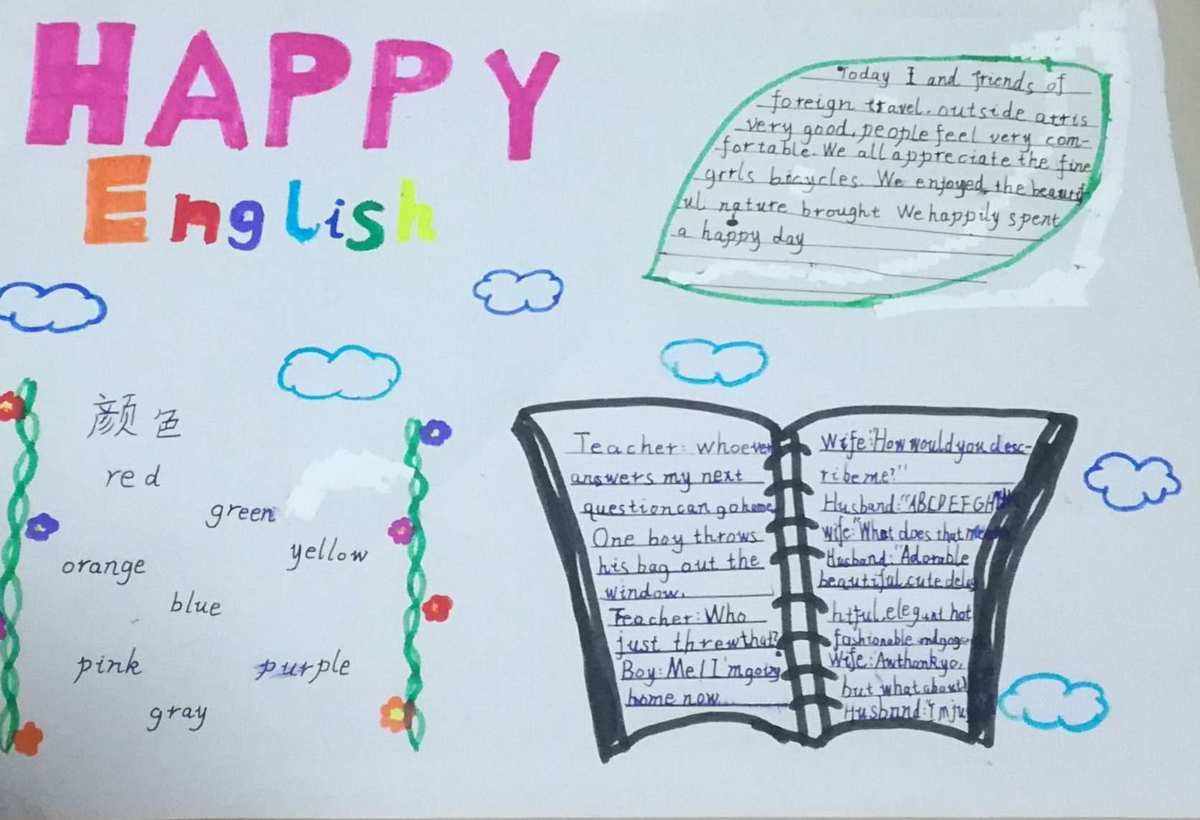 HAPPY
English
Today I and friends of
foreign travel, outside arris
very good, people feel very com-
fortable. We all appreciate the fine
grrls bicycles. We enjoyed the beautif
ul nature brought We happily spent
a happy day
颜色
red
green
yellow
orange
blue
pink
purple
gray
Teacher: whoever
answers my next
question can go home
One boy throws
his bag out the
window.
Teacher: Who
just threw that?
Boy: Me! I'm going
home now...
Wife: "How would you desc-
ribe me?"
Husband: "ABCDEFGH
Wife: "What does that mean
Husband: "Adorable
beautiful, cute delig
htful, elegant hot
fashionable
Wife: Aw thank yo,
but what about
Husband: I'm ju